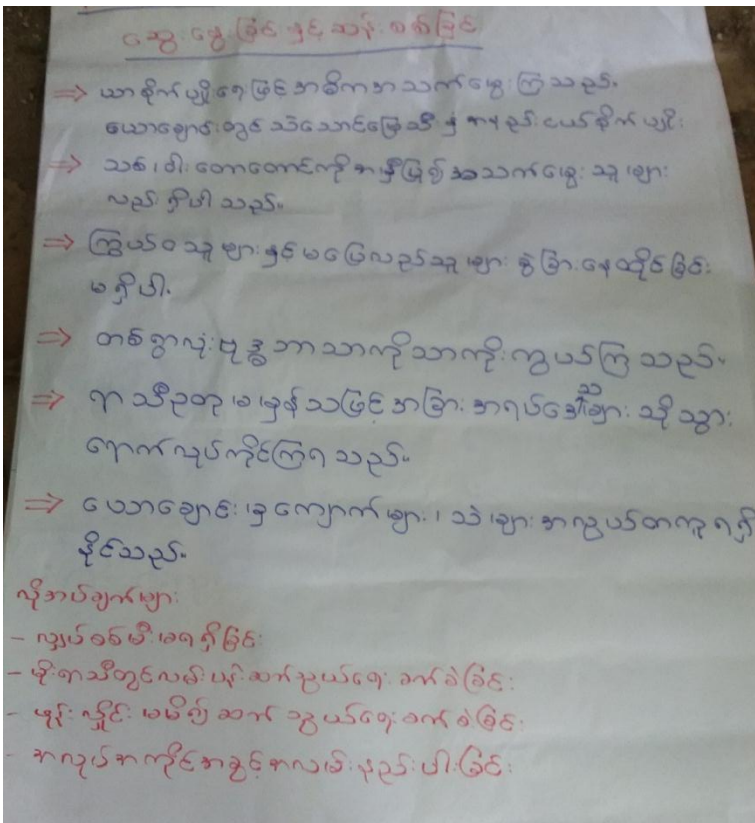 ဆွေးမွေးခြင်းနှင့် ဆန်းစစ်ခြင်း
⇒ ယာစိုက်ပျိုးရေးဖြင့် အဓိကအသက်မွေးကြသည်။
ယောချောင်းတွင် သဲသောင်မြေသီးနှံ အနည်းငယ်စိုက်ပျိုး
⇒ သစ်၊ ဝါးတောတောင်ကိုအမှီပြု၍ အသက်မွေးသူများ
လည်း ရှိပါသည်။
⇒ ကြွယ်ဝသူများနှင့် မပြေလည်သူများ ခွဲခြားနေထိုင်ခြင်း
မရှိပါ။
⇒ တစ်ရွာလုံး ဗုဒ္ဓဘာသာကိုသာကိုးကွယ်ကြသည်။
⇒ ရာသီဥတု မမှန်သဖြင့် အခြားအရပ်ဒေသများသို့ သွား
ရောက်လုပ်ကိုင်ကြရသည်။
⇒ ယောချောင်းမှ ကျောက်များ၊ သဲများ အလွယ်တကူရရှိ
နိုင်သည်။
လိုအပ်ချက်များ
- လျှပ်စစ်မီးမရရှိခြင်း
- မိုးရာသီတွင်လမ်းပန်းဆက်သွယ်ရေးခက်ခဲခြင်း
- ဖုန်းလိုင်းမမိ၍ ဆက်သွယ်ရေးခက်ခဲခြင်း
- အလုပ်အကိုင်အခွင့်အလမ်းနည်းပါးခြင်း